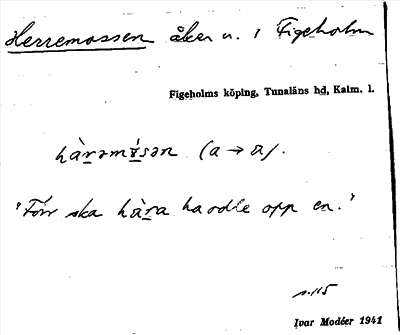 Herremossen åker n. i Figeholm
Figeholms köping, Tunaläns hd, Kalm. l.
hàrəmɷ́sən (a → a).
"Förr ska hàra hadde opp en."
s. 115
Ivar Modéer 1941